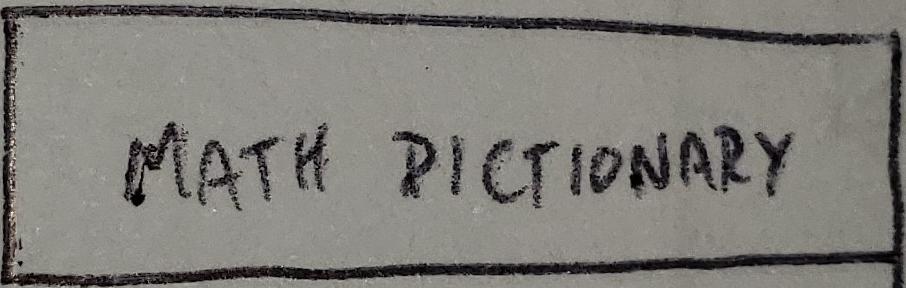 MATH DICTIONARY